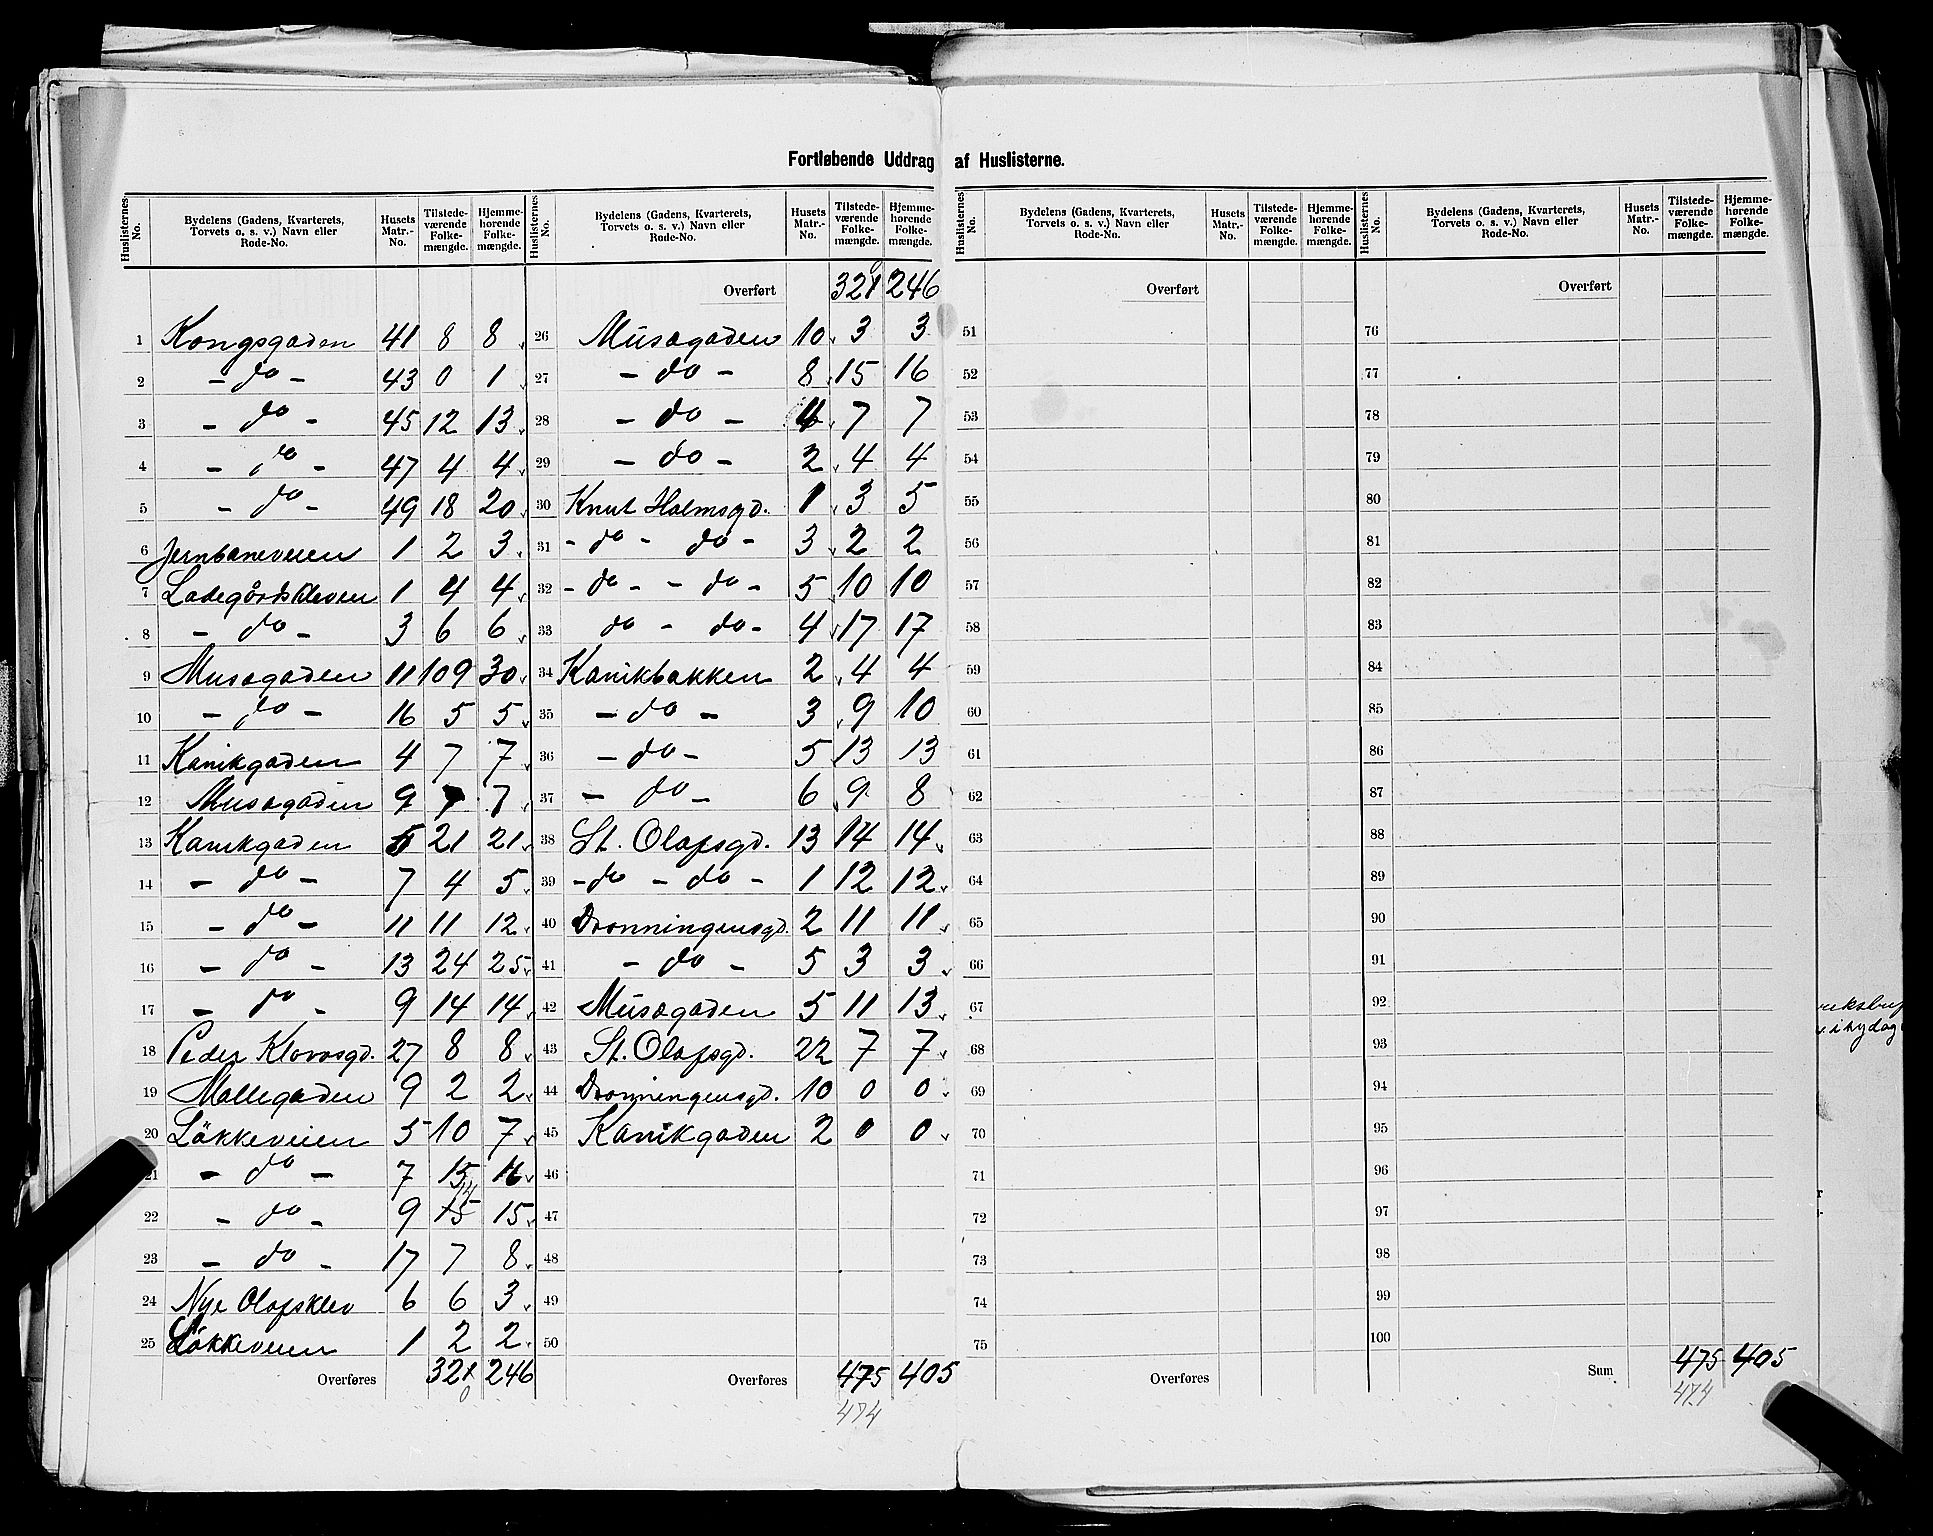 Fortløbende Uddrag af Huslisterne.
Huslisternes No. Bydelens (Gadens, Kvarterets, Torvets o. s. v.) Navn eller Rode-No. Husets Matr.-No. Tilstede-værende Folke-mængde. Hjemme-hørende Folke-mængde.
1 Kongsgaden 41 8 8
2 - do - 43 0 1
3 - do - 45 12 13
4 - do - 47 4 4
5 - do - 49 18 20
6 Jernbaneveien 1 2 3
7 Ladegårdskleven 1 4 4
8 - do - 3 6 6
9 Musægaden 11 109 30
10 - do - 16 5 5
11 Kanikgaden 4 7 7
12 Musægaden 9 7 7
13 Kanikgaden 5 21 21
14 - do - 7 4 5
15 - do - 11 11 12
16 - do - 13 24 25
17 - do - 9 14 14
18 Peder Klovsgd. 27 8 8
19 Møllegaden 9 2 2
20 Løkkeveien 5 10 7
21 - do - 7 15
22 - do - 9 15 14 15
23 - do - 17 7 8
24 Nye Olafsklev 6 6 3
25 Løkkeveien 1 2 2
Overføres 321 0 246
Huslisternes No. Bydelens (Gadens, Kvarterets, Torvets o. s. v.) Navn eller Rode-No. Husets Matr.-No. Tilstede-værende Folke-mængde. Hjemme-hørende Folke-mængde.
Overført 321 0 246
26 Musægaden 10 3 3
27 - do - 8 15 16
28 - do - 4 7 7
29 - do - 2 4 4
30 Knut Holmsgd. 1 3 5
31 - do - do - 3 2 2
32 - do - - do - 5 10 10
33 do - do - 4 17 17
34 Kanikbakken 2 4 4
35 - do - 3 9 10
36 - do - 5 13 13
37 - do - 6 9 8
38 St. Olafsgd. 13 14 14
39 - do - do - 1 12 12
40 Dronningensgd. 2 11 11
41 - do - 5 3 3
42 Musægaden 5 11 13
43 St. Olafsgd. 22 7 7
44 Dronningensgd. 10 0 0
45 Kanikgaden 2 0 0
46
47
48
49
50
Overføres 475 405
474
Huslisternes No. Bydelens (Gadens, Kvarterets, Torvets o. s. v.) Navn eller Rode-No. Husets Matr.-No. Tilstede-værende Folke-mængde. Hjemme-hørende Folke-mængde.
Overført
51
52
53
54
55
56
57
58
59
60
61
62
63
64
65
66
67
68
69
70
71
72
73
74
75
Overføres
Huslisternes No. Bydelens (Gadens, Kvarterets, Torvets o. s. v.) Navn eller Rode-No. Husets Matr.-No. Tilstede-værende Folke-mængde. Hjemme-hørende Folke-mængde.
Overført
76
77
78
79
80
81
82
83
84
85
86
87
88
89
90
91
92
93
94
95
96
97
98
99
100
Sum 475 405
474